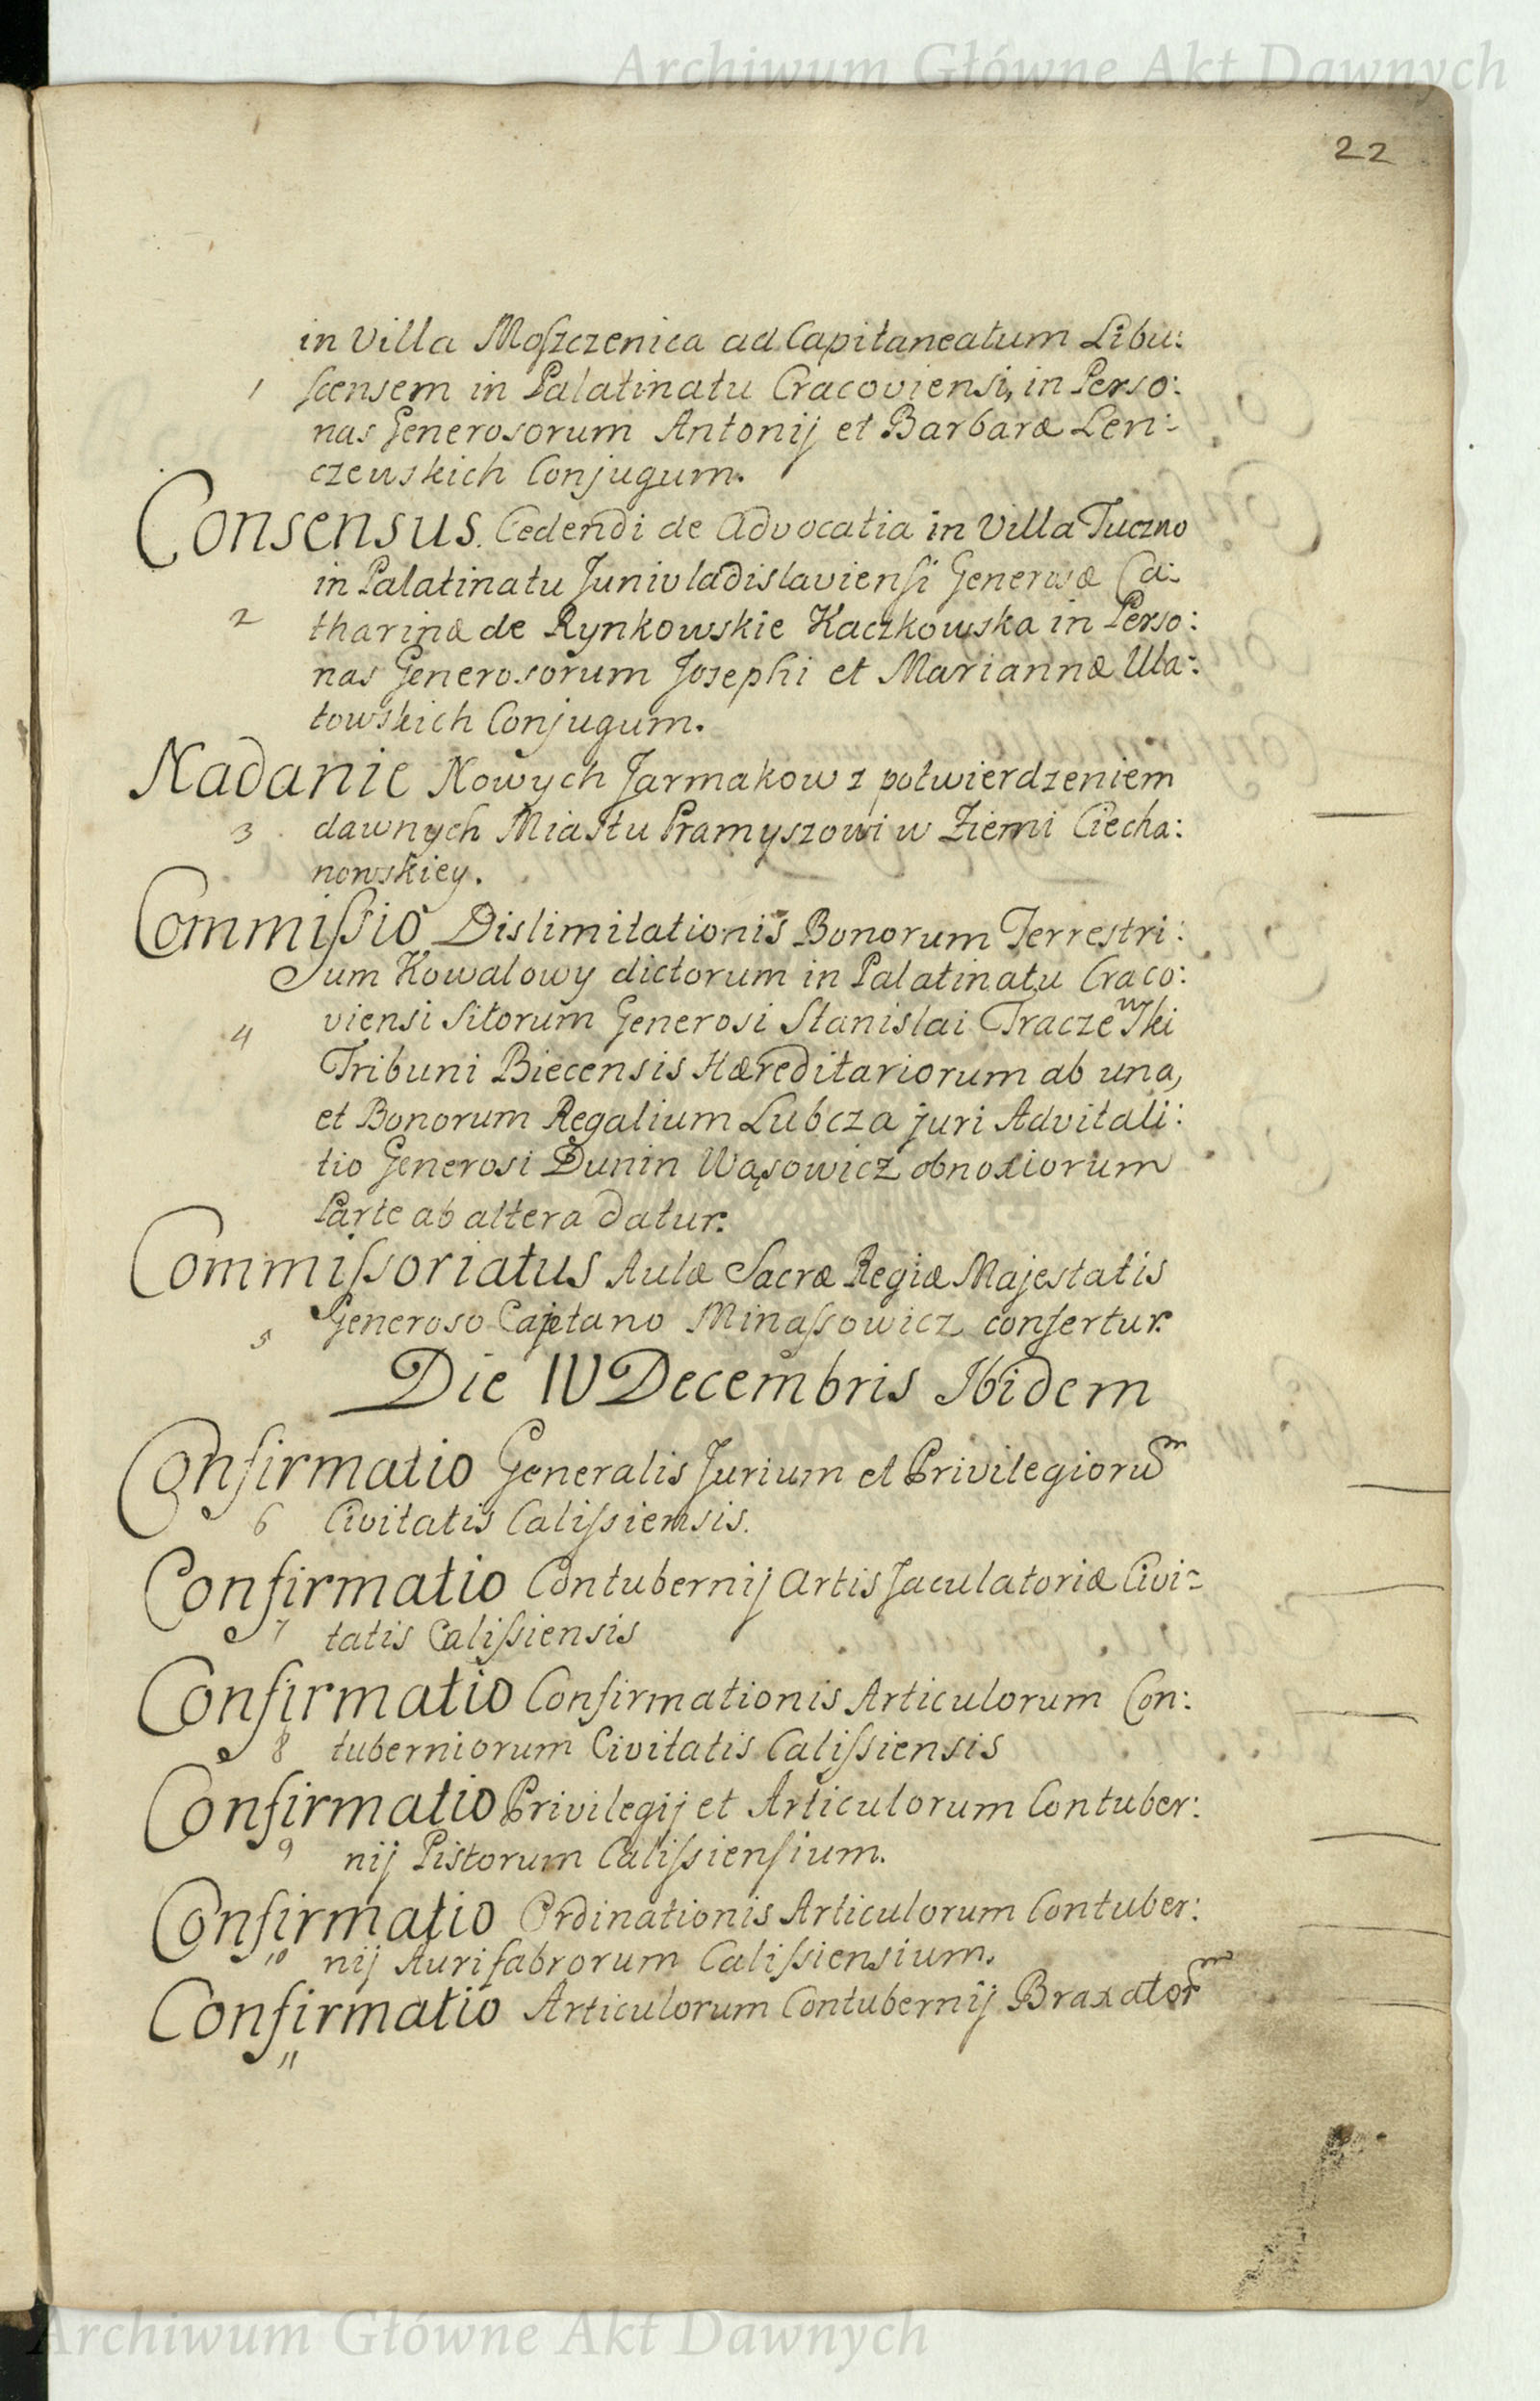 Archiwum Główne Akt Dawnych
22
in Villa Moszczenica ad Capitaneatum Libu:
1 scensem in Palatinatu Cracoviensi, in Perso:
nas Generosorum Antonij et Barbaræ Len:
czewskich Conjugum.
Consensus Cedendi de Advocatia in Villa Tuczno
in Palatinatu Junivladislaviensi Generosæ Ca:
2 tharinæ de Rynkowskie Kaczkowska in Perso:
nas Generosorum Josephi et Mariannæ Ula:
towskich Conjugum.
Nadanie Nowych Jarmakow z potwierdzeniem
3 dawnych Miastu Pramyszowi w Ziemi Ciecha:
nowskiey.
Commissio Dislimitationis Bonorum Terrestri:
um Kowalowy dictorum in Palatinatu Craco:
4 viensi Sitorum Generosi Stanislai Traczewski
Tribuni Biecensis Hæreditariorum ab una,
et Bonorum Regalium Lubcza juri Advitali:
tio Generosi Dunin Wąsowicz obnoxiorum
Parte ab altera datur.
Commissoriatus Aulæ Sacræ Regiæ Majestatis
5 Generoso Cajetano Minassowicz confertur.
Die IV Decembris Ibidem
Confirmatio Generalis Jurium et Privilegiorum
6 Civitatis Calissiensis.
Confirmatio Contubernij Artis Jaculatoriæ Civi:
7 tatis Calissiensis
Confirmatio Confirmationis Articulorum Con:
8 tuberniorum Civitatis Calissiensis
Confirmatio Privilegij et Articulorum Contuber:
9 nij Pistorum Calissiensium.
Confirmatio Ordinationis Articulorum Contuber:
10 nij Aurifabrorum Calissiensium.
Confirmatio Articulorum Contubernij Braxatorm
11
Archiwum Główne Akt Dawnych